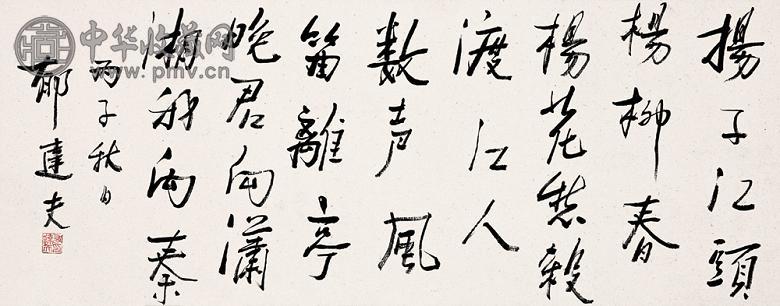 揚子江頭
楊柳春
楊花愁殺
渡江人
数声風
笛離亭
晚君向瀟
湘我向秦
丙子秋日
郁達夫
中华收藏网
www.pmv.cn